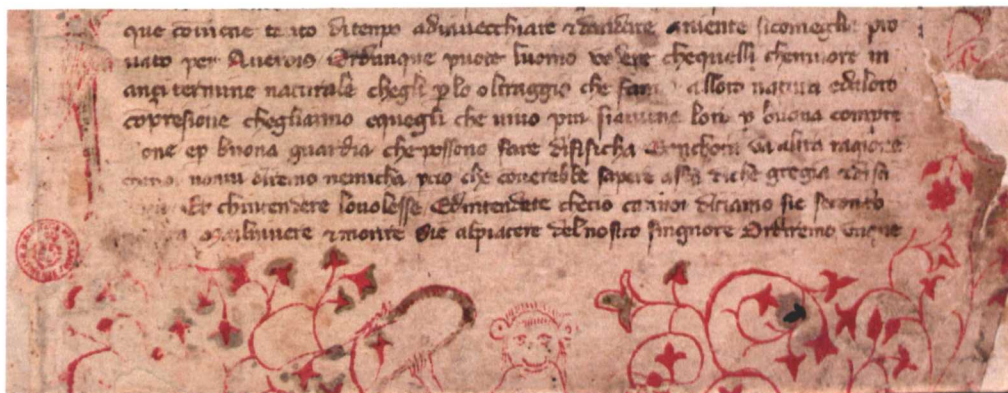 que coviene tanto ditempo adinvecchiare & dandare aniente sicomeglie pro
vato per Averois Adunque puote luomo vedere chequelli chemuore in
anzi termine naturale chegli p lo oltraggio che fano alloro natura edaloro
copresione cheglianno equegli che vivo piu siaviene loro p buona compre
one ep buona guardia che possono fare difisicha Anchora va altra ragione
nonvi diremo nemicha pcio che coverebbe sapere assa diche gregia & di
Et chintendere lovolesse Edintendete checio canoi diciamo sie secondo
Malvivere & morire sie alpiacere del nostro singnore Ordiremo